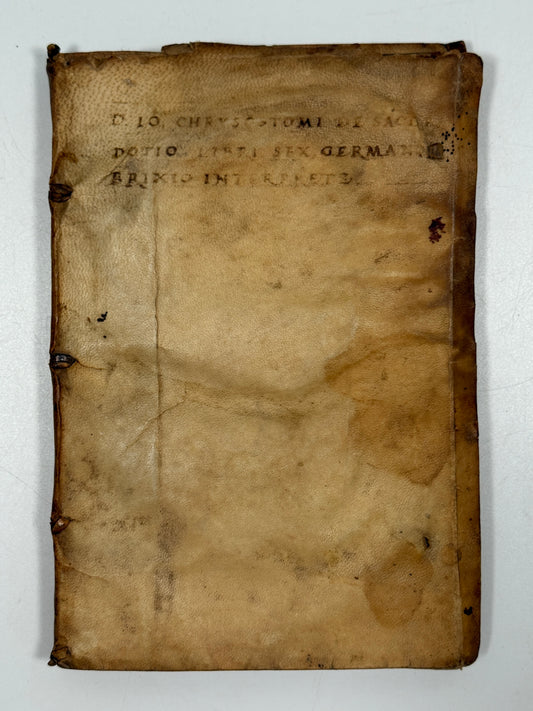 D. IO. CHRYSOSTOMI DE SACE
DOTIO. LIBRI SEX GERMAN
BRIXIO INTERPRETE